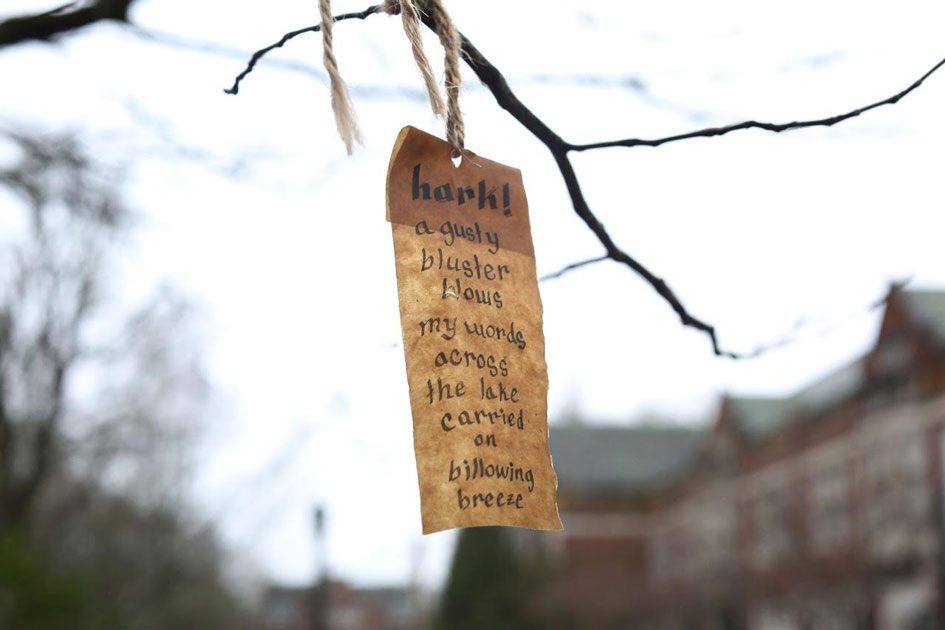 hark!
a gusty
bluster
blows
my words
across
the lake
carried
on
billowing
breeze